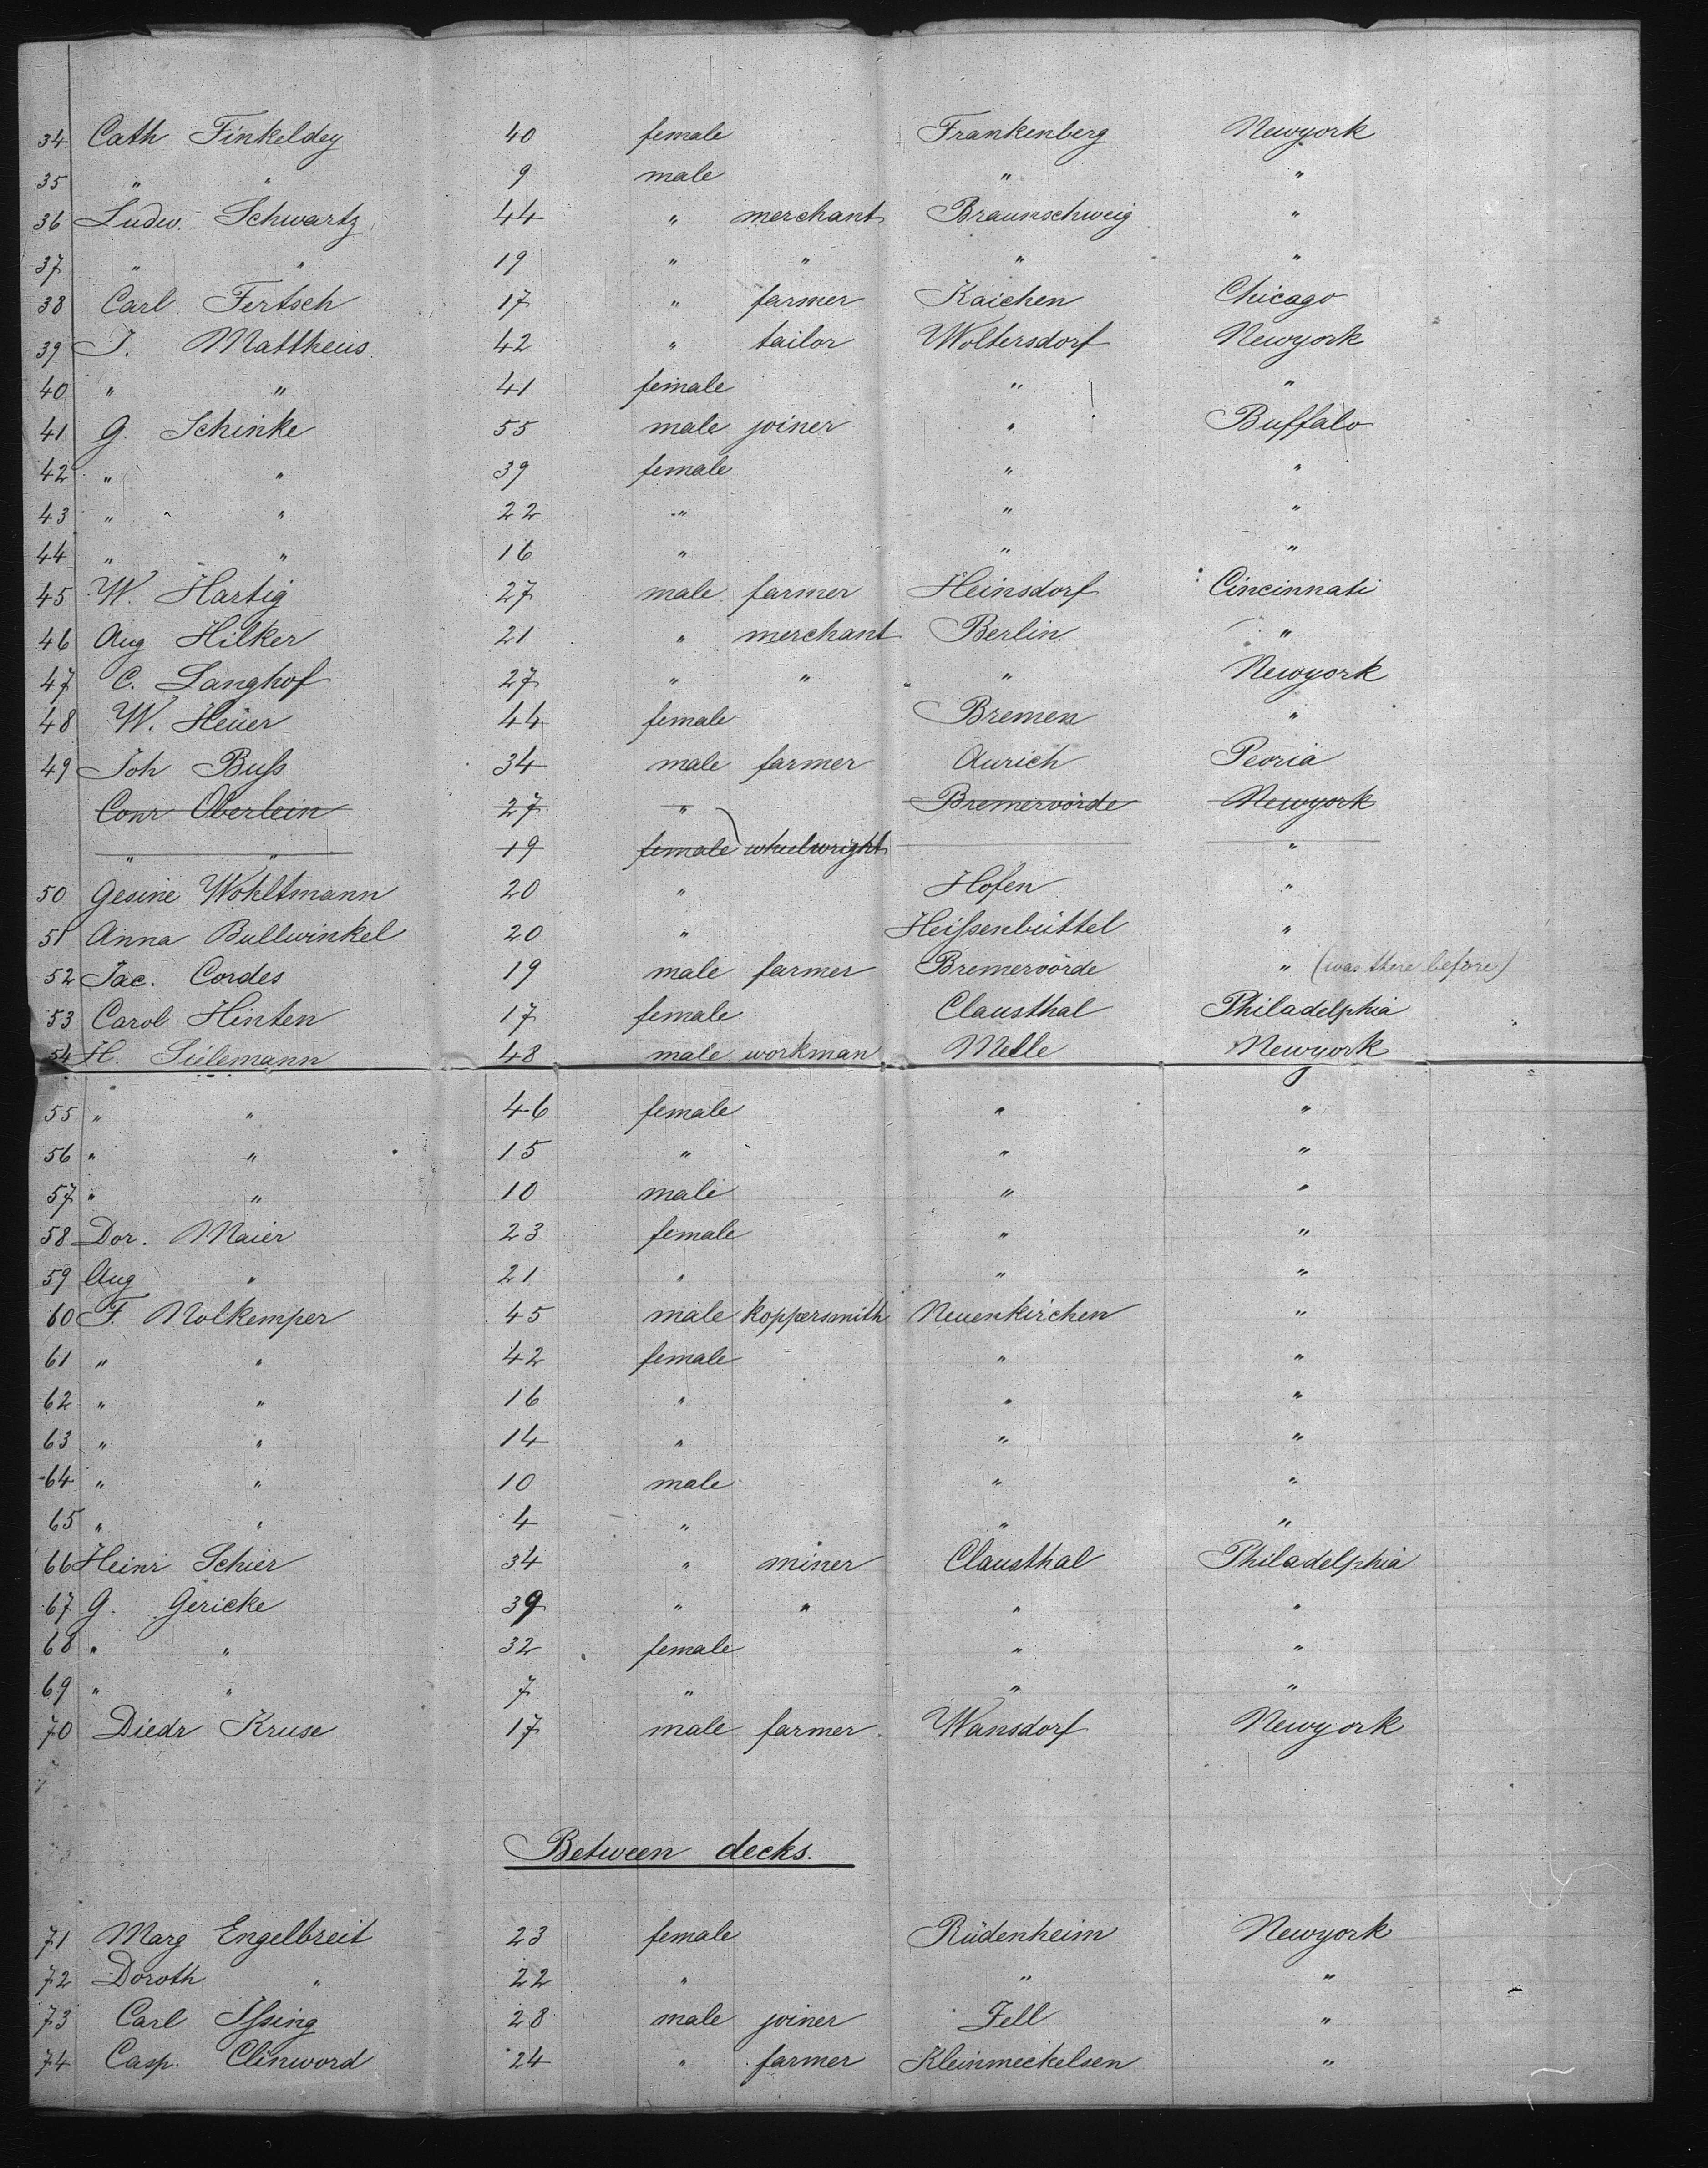 34 Cath Finkeldey 40 female Frankenberg Newyork
35 " " 9 male " "
36 Ludw. Schwartz 44 " merchant Braunschweig "
37 " " 19 " " " "
38 Carl Fertsch 17 " farmer Kaichen Chicago
39 J. Mattheus 42 " tailor Woltersdorf Newyork
40 " " 41 female " "
41 G. Schinke 55 male joiner " Buffalo
42 " " 39 female " "
43 " " 22 " " "
44 " " 16 " " "
45 W. Hartig 27 male farmer Heinsdorf Cincinnati
46 Aug Hilker 21 " merchant Berlin "
47 C. Langhof 27 " " " Newyork
48 W. Heüer 44 female Bremen "
49 Joh Buſs 34 male farmer Aurich Peoria
Conr Oberlein 27 " Bremervörde Newyork
" " 19 female wheelwright "
50 Gesine Wohltmann 20 " Hofen "
51 Anna Bullwinkel 20 " Heiſsenbüttel "
52 Jac. Cordes 19 male farmer Bremervörde " (was there before)
53 Carol Hinten 17 female Clausthal Philadelphia
54 H. Sielemann 48 male workman Melle Newyork
55 " " 46 female " "
56 " " 15 " " "
57 " " 10 male " "
58 Dor. Maier 23 female " "
59 Aug " 21 " " "
60 F. Nolkemper 45 male koppersmith Neuenkirchen "
61 " " 42 female " "
62 " " 16 " " "
63 " " 14 " " "
64 " " 10 male " "
65 " " 4 " " "
66 Heinr Schier 34 " miner Clausthal Philadelphia
67 G. Gericke 39 " " " "
68 " " 32 female " "
69 " " 7 " " "
70 Diedr Kruse 17 male farmer Wansdorf Newyork
Between decks.
71 Marg Engelbreit 23 female Rüdenheim Newyork
72 Doroth " 22 " " "
73 Carl Iſsing 28 male joiner Zell "
74 Casp. Clinword 24 " farmer Kleinmeckelsen "